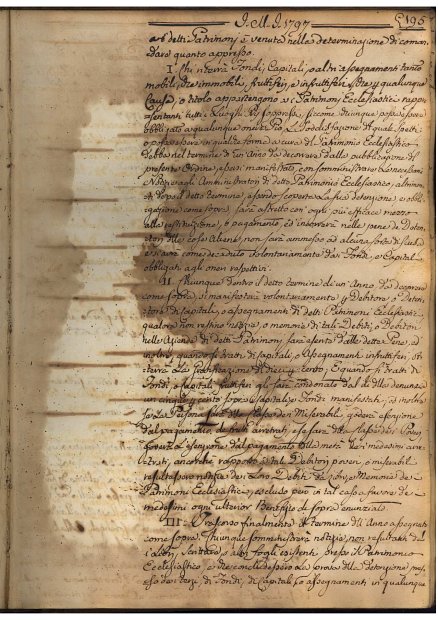 J. M. J. 1797
195
a di detti Patrimonj è venuta nella determinazione di coman-
dare quanto appresso.
I. Chi riterrà Fondi, Capitali, o altri assegnamenti tanto
mobili, che immobili, fruttiferi, e infruttiferi, che per qualunque
Causa, o titolo appartengono a i Patrimonj Ecclesiastici rappre-
sentanti tutti i Luoghi Pii soppressi, siccome chiunque possa essere
obbligato a qualunque onere Pio, la Sodisfazione del quale spetti
o possa essere in qualche forma a cura del Patrimonio Ecclesiastico
debba nel termine di un'Anno da decorrere dalla pubblicazione del
presente Ordine, essersi manifestato, con somministrare le necessarie
Notizie agli Amministratori di detto Patrimonio Ecclesiastico, altrimen-
ti dopo il detto termine, essendo scoperta la sua detenzione, o obbli-
gazione come sopra, sarà astretto con ogni più efficace mezzo
alla restituzione, o pagamento, ed incorrerà nelle pene dei Deten-
tori delle cose Aliene non sarà ammesso ad alcuna sorte di scusa
e sarà come decaduto volontariamente dai Fondi, e Capitali
obbligati agli oneri respettivi.
II. Chiunque dentro il detto termine di un'Anno da decorrere
come sopra, si manifesterà volontariamente per Debitore, o Deten-
tore di Capitali, o assegnamenti di detti Patrimonj Ecclesiastici,
qualora non restino notizie, o memorie di tali Debiti, o Debitori
nelle Aziende di detti Patrimonj sarà esente dalle dette Pene, ed
inoltre, quando si tratti di Capitali, o Assegnamenti infruttiferi, ot-
terrà la gratificazione di dieci per cento, E quando si tratti di
Fondi, e Capitali fruttiferi gli sarà condonato dal dì della denunzia
un cinque per cento sopra i Capitali, e Fondi manifestati, ed inoltre
se la Persona sia della classe dei Miserabili godrà esenzione
dal pagamento dei frutti arretrati, e se sarà della classe dei Poveri
goderà l'esenzione dal pagamento della metà dei medesimi arre-
trati, ancorchè rapporto a tali Debitori poveri, o miserabili
resultassero notizie dei loro Debiti dai Libri, e Memorie dei
Patrimonj Ecclesiastici, escluso però in tal caso a favore de
medesimi ogni ulteriore Benefizio di sopra enunziato.
III. Trascorso finalmente il termine dell'Anno assegnato
come sopra, Chiunque somministrerà notizie non resultanti dai
i Libri, Scritture, o altri fogli esistenti presso il Patrimonio
Ecclesiastico, e che concludessero la prova della detenzione pres-
so dei terzi, di Fondi, di Capitali, o assegnamenti in qualunque